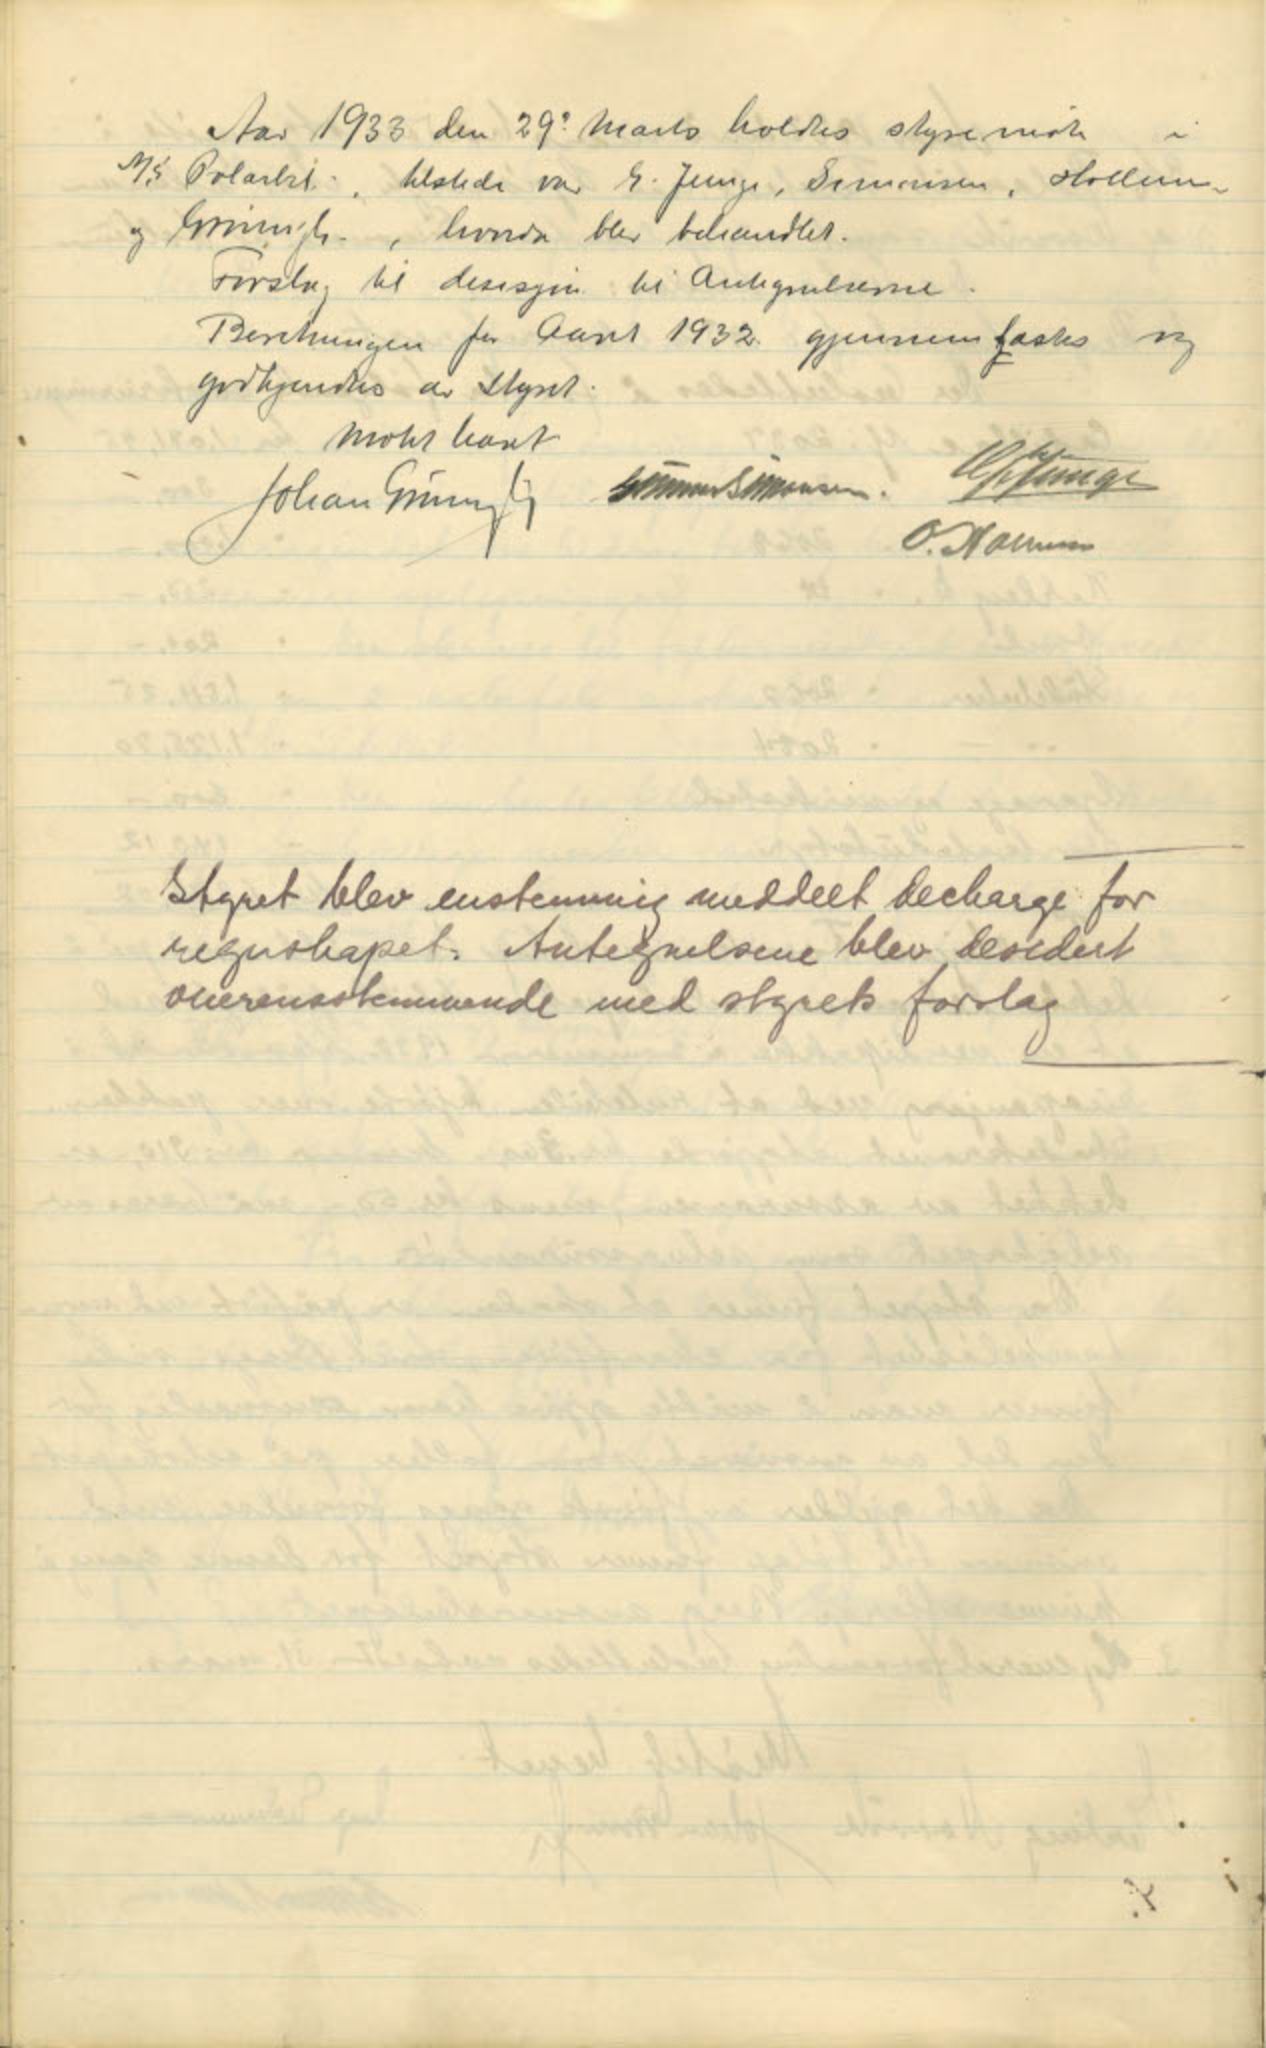 Aar 1933 den 29de Marts holdtes styremöte i
M/S Polarbil., tilstede var E. Junge, Simonsen,
og, hvorda blev behandlet.
Forslag til desisjon til Antegnelserne.
Beretningen for Aaret 1932 gjennemgaaes og
godkjendtes av Styret.
Möte hævt
Johan Gunnar Simonsen. Junge
O.
Styret blev enstemmig meddelt decharge for
regnskapet. Antegnelsene blev desidert
overensstemmende med styrets forslag